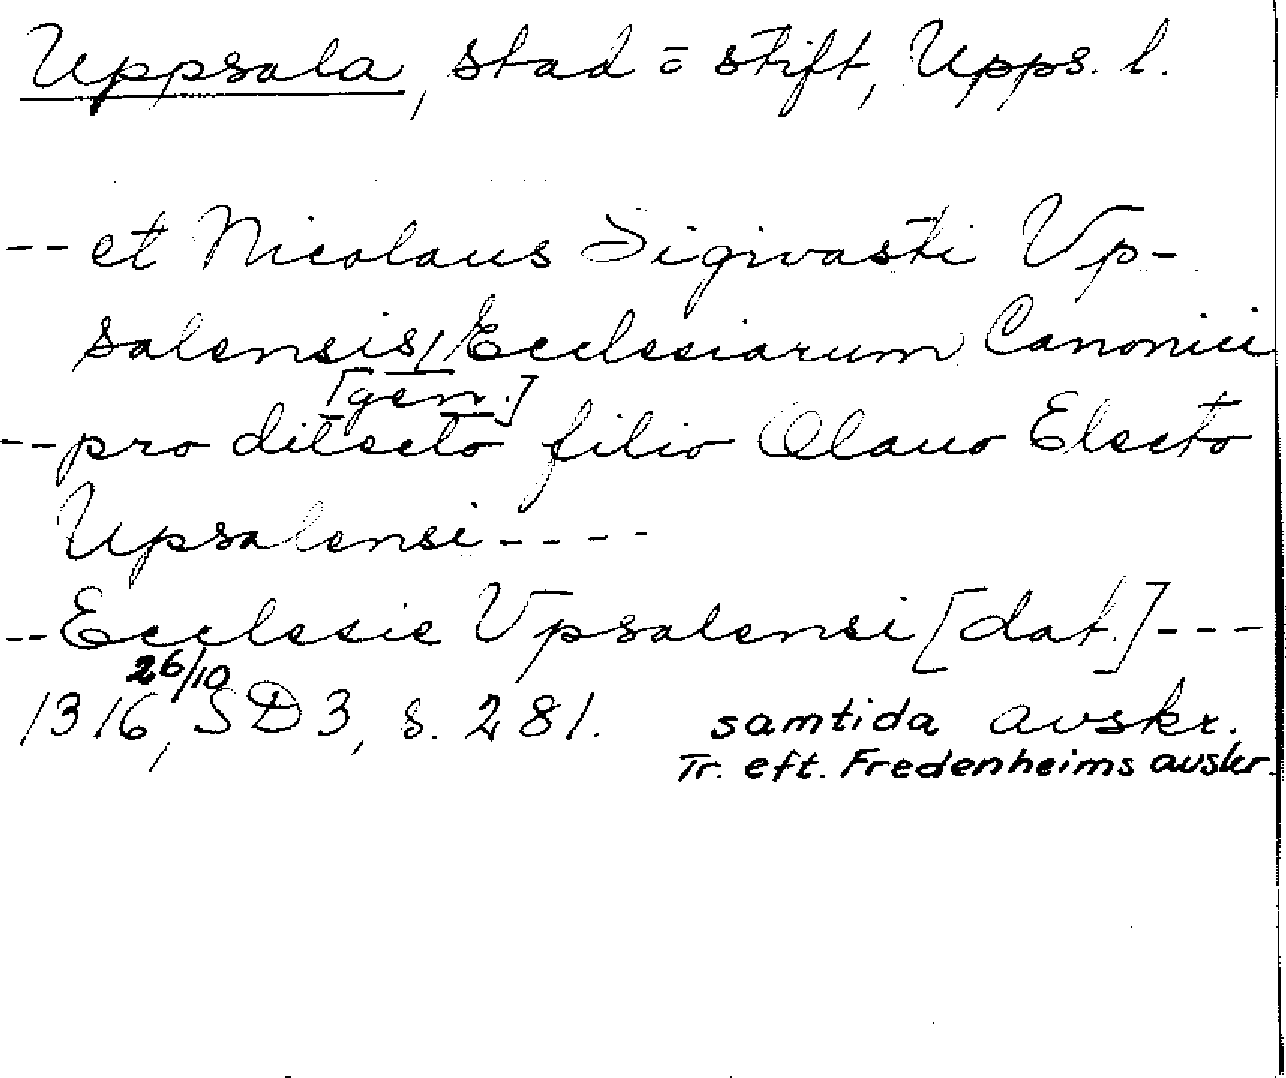 Uppsala, stad o stift, Upps. l.
-- et Nicolaus Sigivasti Vp-
salensis / Ecclesiarum Canonici
[gen.]
-- pro dilecto filio Olauo Electo
Upsalensi ----
-- Ecclesie Vpsalensi [dat.] ---
26/10
1316, SD 3, s. 281. samtida avskr.
Tr. eft. Fredenheims avskr.